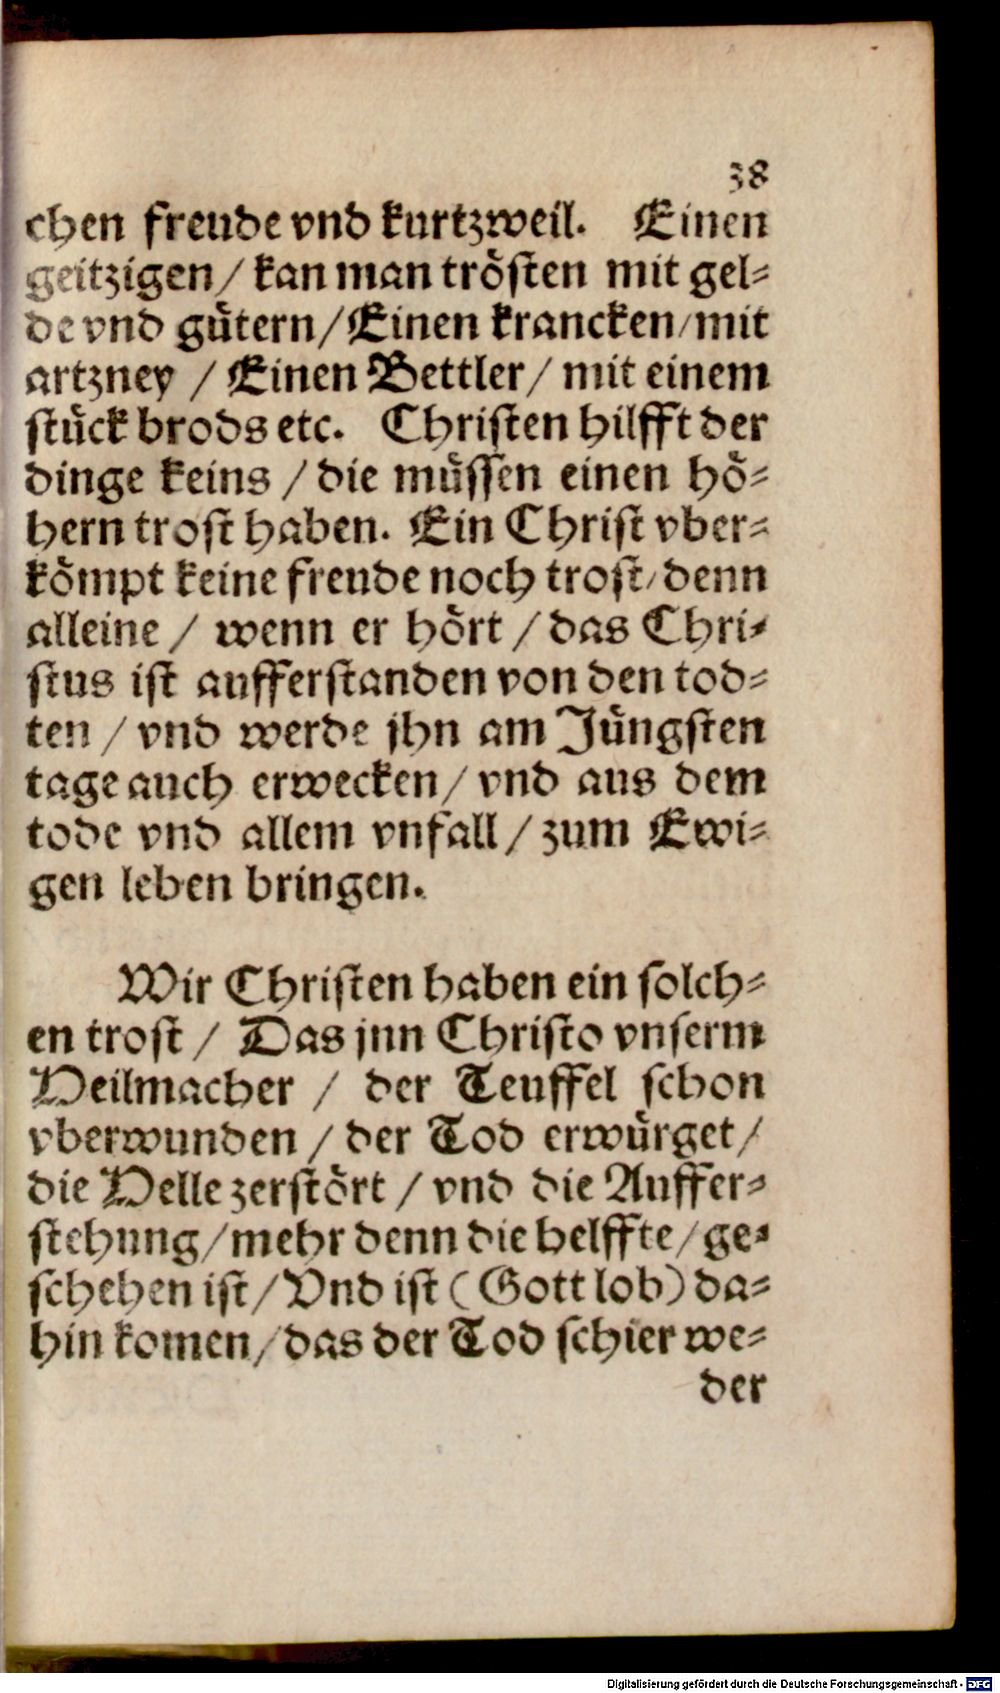 38
chen freude vnd kurtzweil. Einen
geitzigen / kan man trösten mit gel⸗
de vnd gütern / Einen krancken / mit
artzney / Einen Bettler / mit einem
stück brods etc. Christen hilfft der
dinge keins / die müssen einen hö⸗
hern trost haben. Ein Christ vber⸗
kömpt keine freude noch trost / denn
alleine / wenn er hört / das Chri⸗
stus ist aufferstanden von den tod⸗
ten / vnd werde jhn am Jüngsten
tage auch erwecken / vnd aus dem
tode vnd allem vnfall / zum Ewi⸗
gen leben bringen.
Wir Christen haben ein solch⸗
en trost / Das jnn Christo vnserm
Heilmacher / der Teuffel schon
vberwunden / der Tod erwürget /
die Helle zerstört / vnd die Auffer⸗
stehung / mehr denn die helffte / ge⸗
schehen ist / Vnd ist (Gott lob) da⸗
hin komen / das der Tod schier we⸗
der
Digitalisierung gefördert durch die Deutsche Forschungsgemeinschaft - DFG